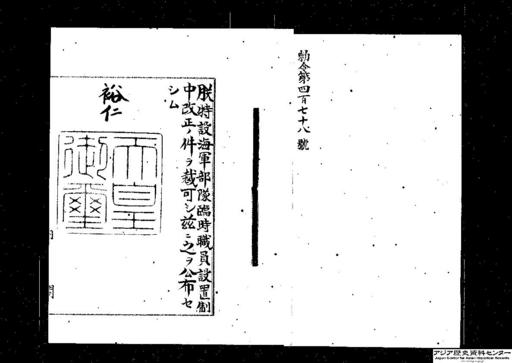 勅令第四百七十八號
朕特設海軍部隊臨時職員設置制
中改正ノ件ヲ裁可シ茲ニ之ヲ公布セ
シム
裕仁
天皇
御璽
アジア歴史資料センター
Japan Center for Asian Historical Records